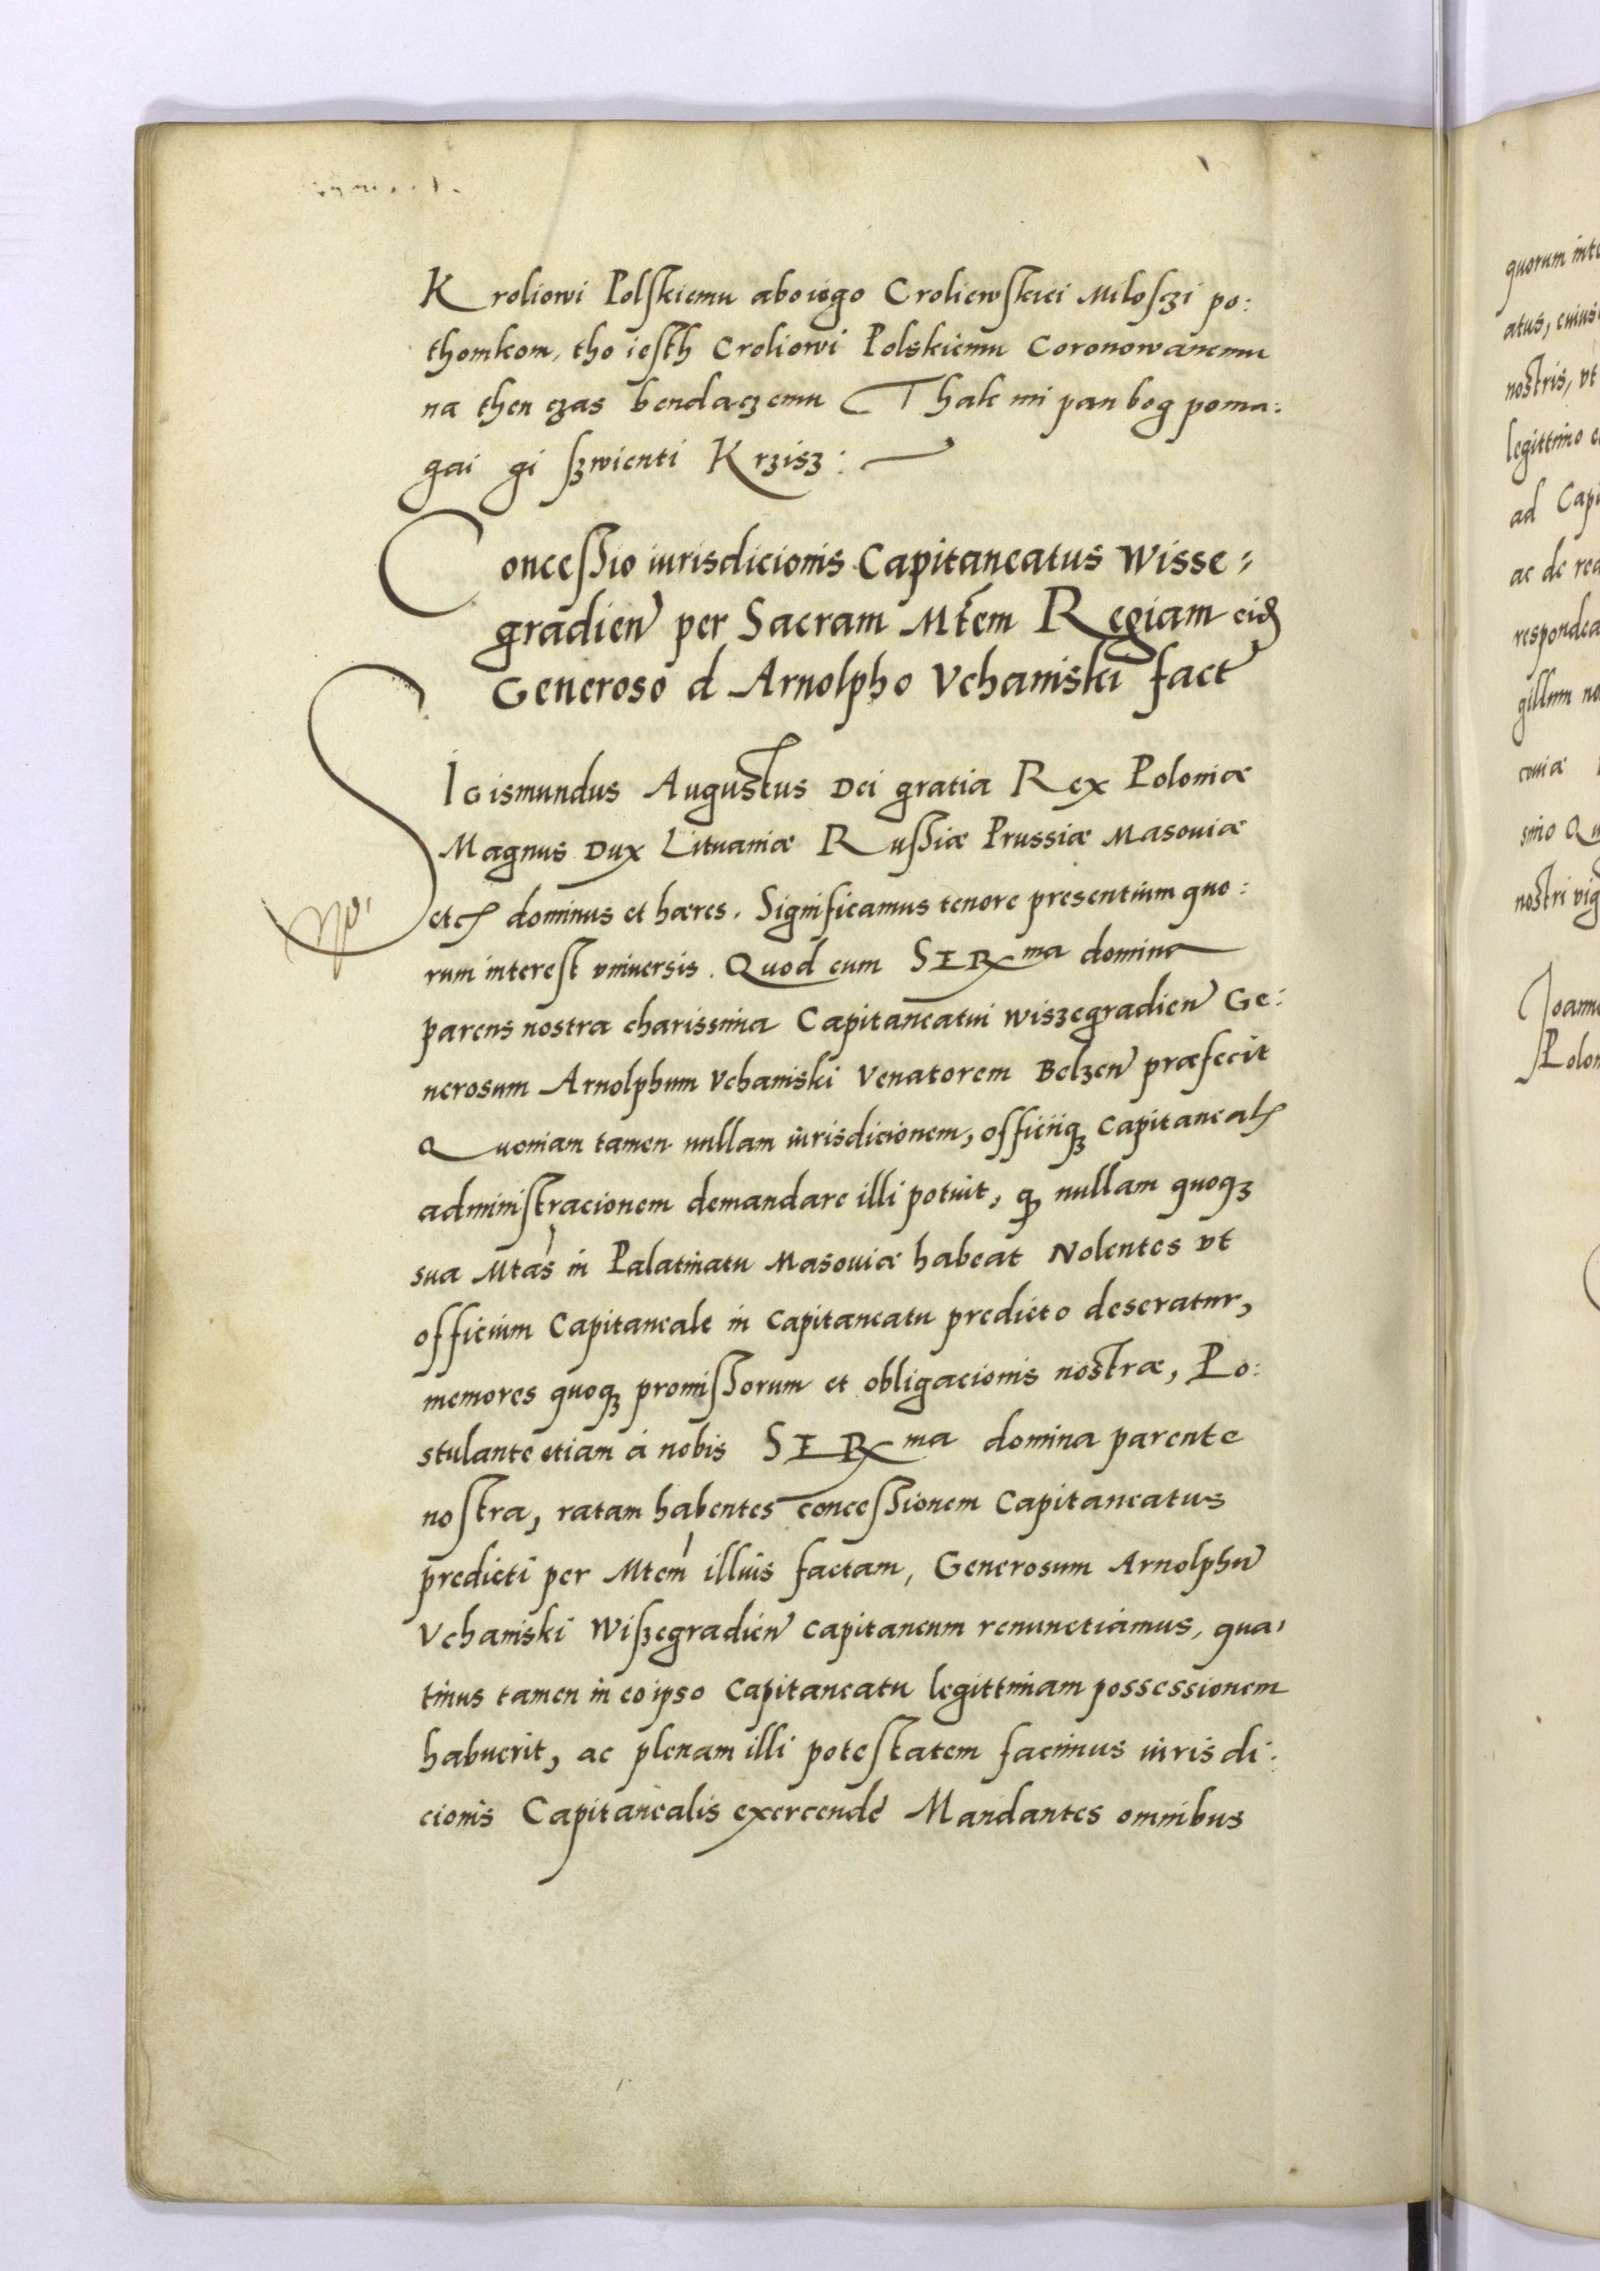 Kroliowi Polskiemu aboiego Croliewskiei Milosczi po:
thomkom, tho iesth Croliowi Polskiemu Coronowanemu
na then czas bendaczemu Thak mi pan bog poma:
gai gi szwienti Krzisz:
Concessio iurisdicionis Capitaneatus Wisse:
gradien per Sacram Mtem Regiam eid
Generoso d Arnolpho Vchanski fact
SIgismundus Augustus Dei gratia Rex Poloniæ
Magnus Dux Lituaniæ Russiæ Prussiæ Masouiæ
etc dominus et hæres. Significamus tenore presentium quo:
rum interest vniuersis. Quod cum SER ma domina
parens nostra charissima Capitaneatui wiszegradien Ge:
nerosum Arnolphum Vchanski Venatorem Belzen præfecit
Quoniam tamen nullam iurisdicionem, officiiq Capitaneal
administracionem demandare illi potuit, q nullam quoq
sua Mtas in Palatinatu Masouiæ habeat Nolentes vt
officium Capitaneale in Capitaneatu predicto deseratur,
memores quoq promissorum et obligacionis nostræ, Po:
stulante etiam à nobis SER ma domina parente
nostra, ratam habentes concessionem Capitaneatus
predicti per Mtem illius factam, Generosum Arnolphu
Vchanski Wiszegradien capitaneum renunctiamus, qua,
tinus tamen in eo ipso Capitaneatu legittimam possessionem
habuerit, ac plenam illi potestatem facimus iurisdi:
cionis Capitanealis exercende Mandantes omnibus
quorum
atus,
nostris, vt
legittimo
ad
ac de
gillum
nostri